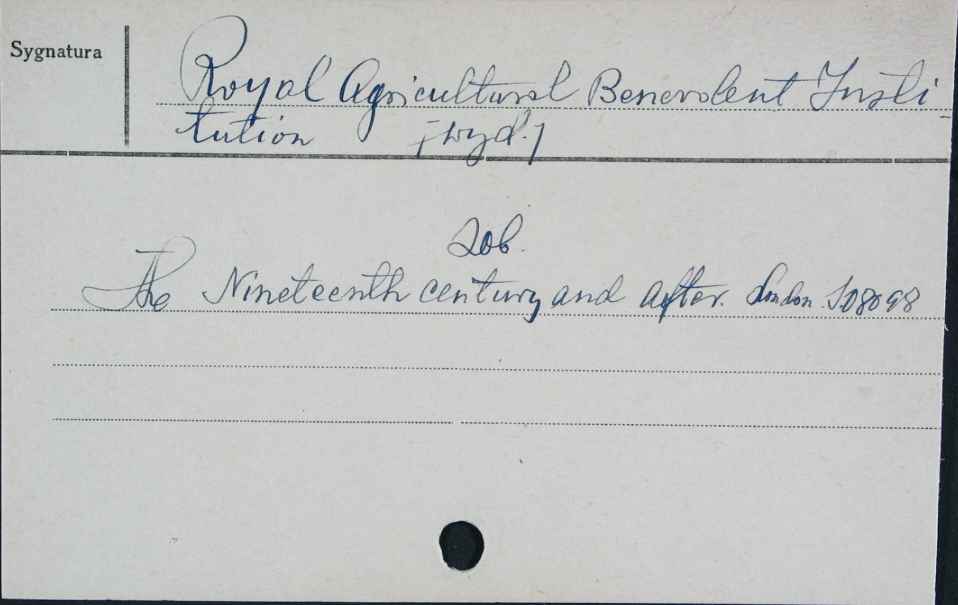 Sygnatura
Royal Agricultural Benevolent Insti-
tution [wyd.]
Zob.
The Nineteenth century and after. London. 508098